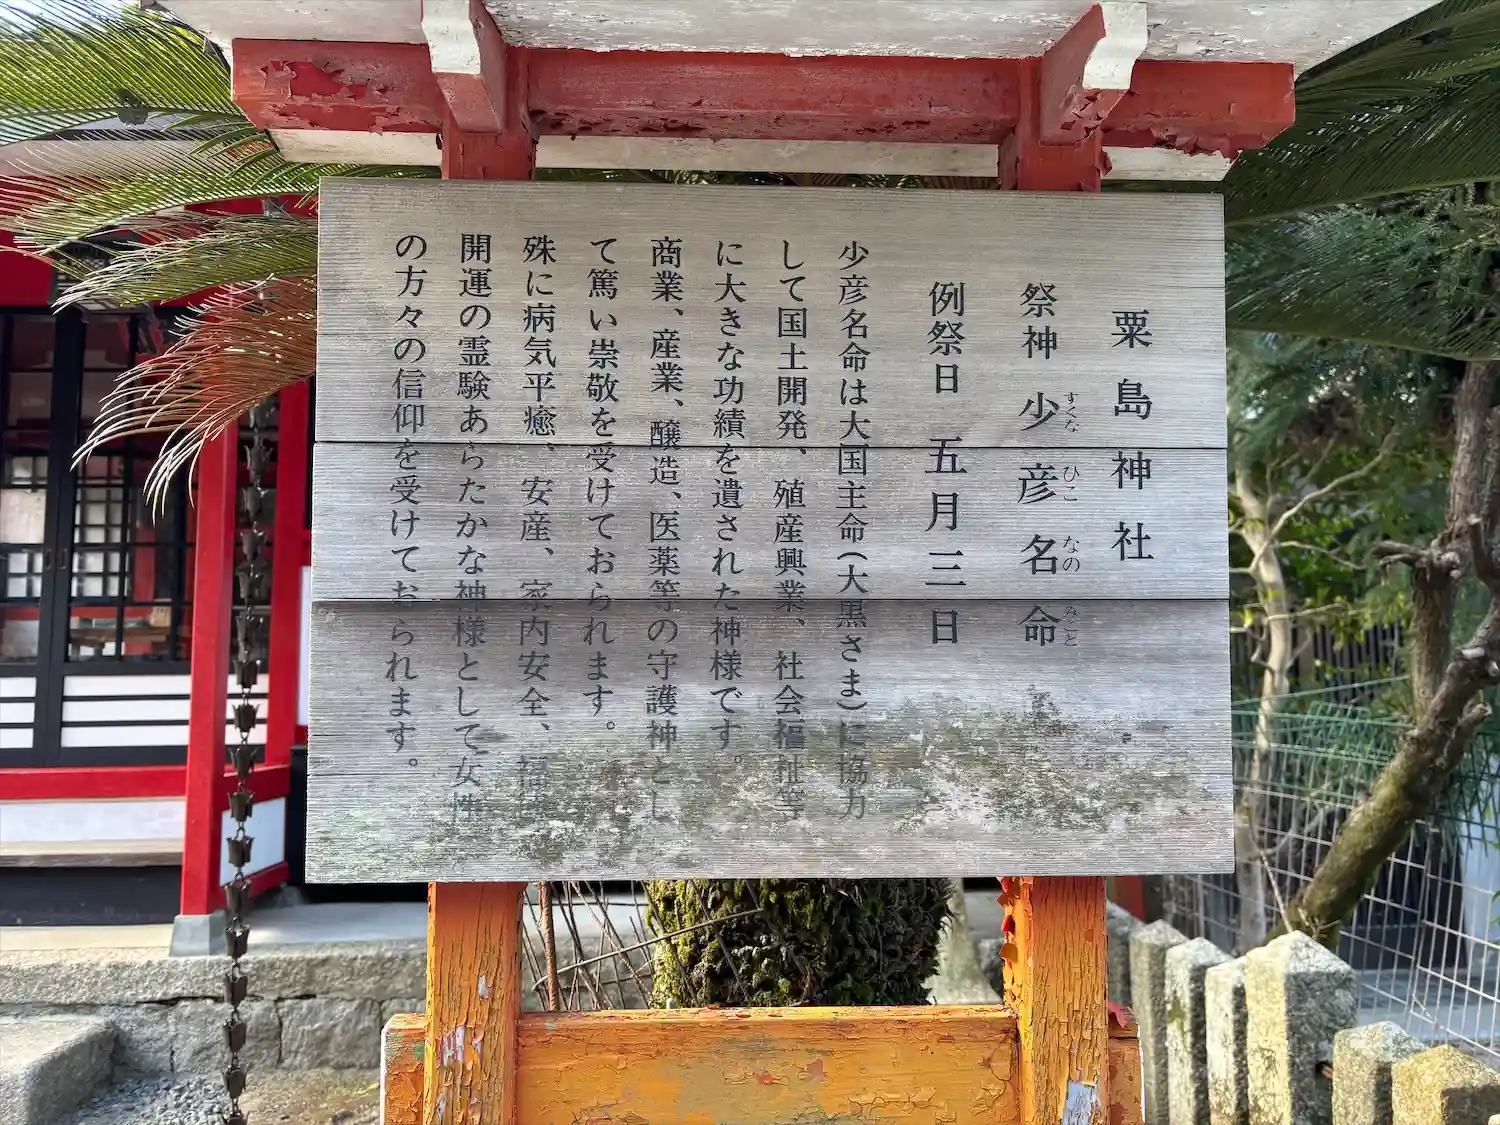 粟島神社
祭神 少彦名命
すくなひこなのみこと
例祭日 五月三日
少彦名命は大国主命(大黒さま)に協力
して国土開発、殖産興業、社会福祉等
に大きな功績を遺された神様です。
商業、産業、醸造、医薬等の守護神とし
て篤い崇敬を受けておられます。
殊に病気平癒、安産、家内安全、福徳
開運の霊験あらたかな神様として女性
の方々の信仰を受けておられます。